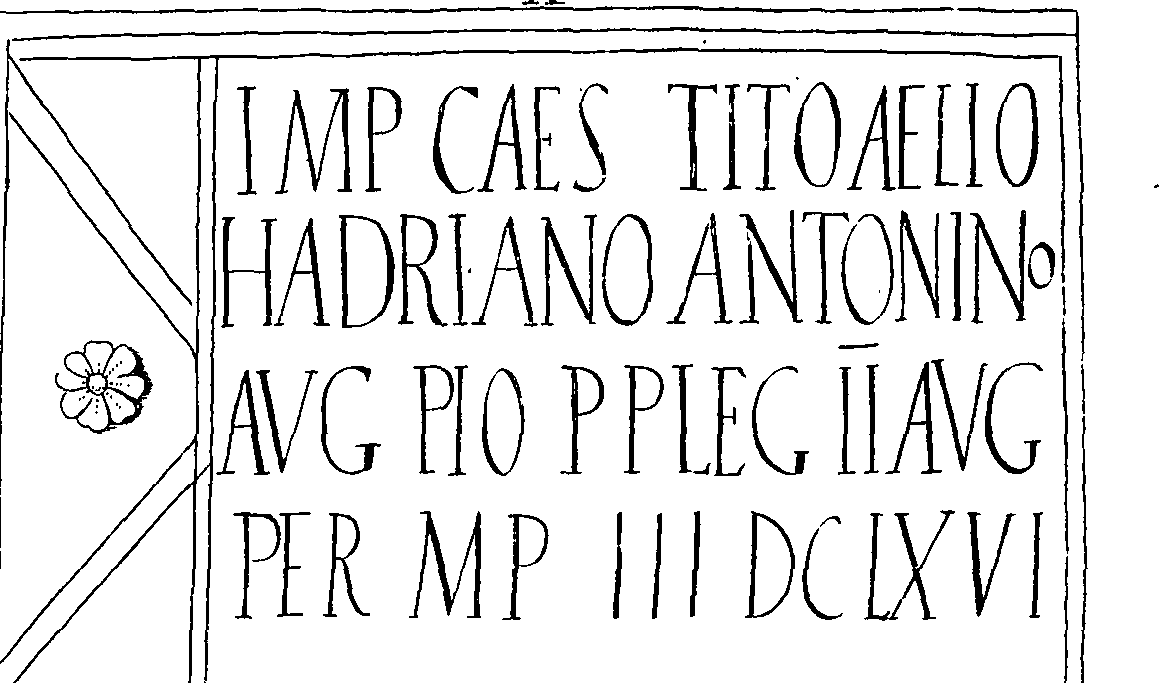 IMP CAES TITO AELIO
HADRIANO ANTONINO
AVG PIO P P LEG II AVG
PER M P III DCLXVI